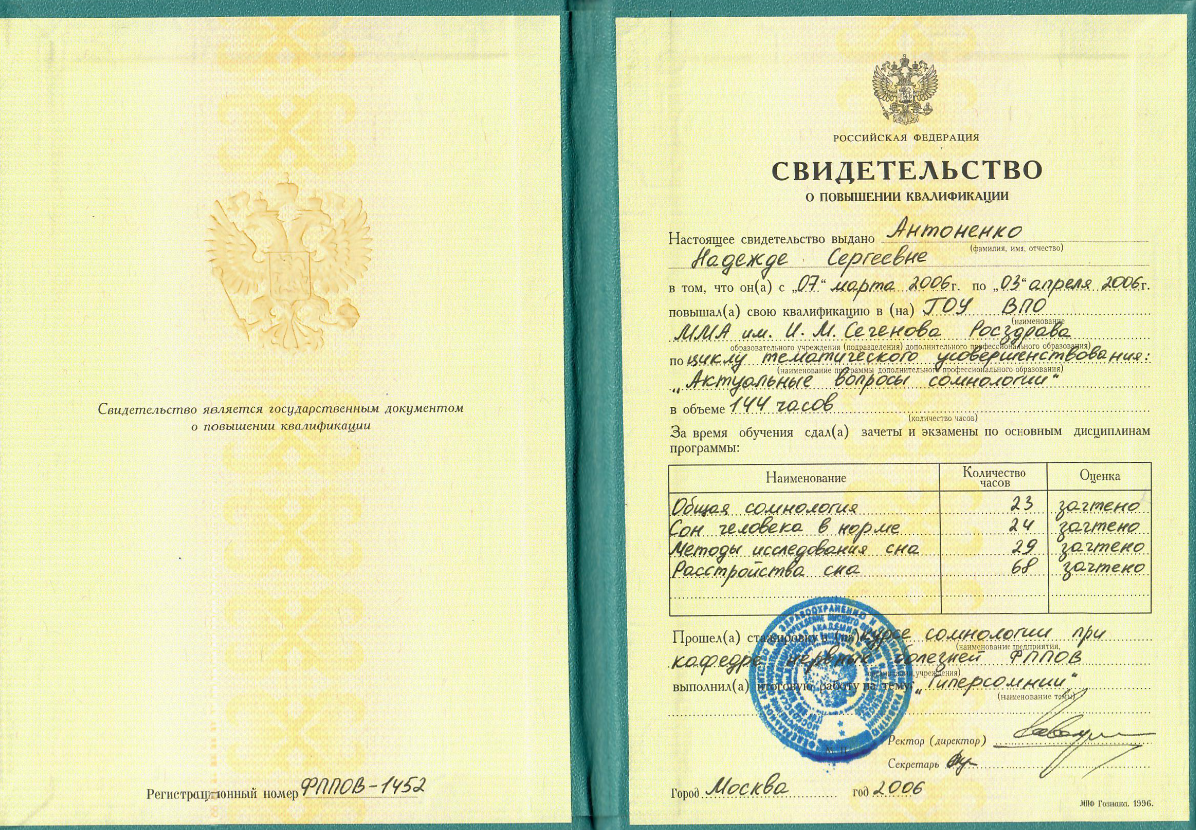 Свидетельство является государственным документом
о повышении квалификации
Регистрационный номер ФППОВ-1452
РОССИЙСКАЯ ФЕДЕРАЦИЯ
СВИДЕТЕЛЬСТВО
О ПОВЫШЕНИИ КВАЛИФИКАЦИИ
Настоящее свидетельство выдано Антоненко
(фамилия, имя, отчество)
Надежде Сергеевне
в том, что он(а) с „07“ марта 2006г. по „03“ апреля 2006г.
повышал(а) свою квалификацию в (на) ГОУ ВПО
(наименование
ММА им. И. М. Сеченова Росздрава
образовательного учреждения (подразделения) дополнительного профессионального образования)
по циклу тематического усовершенствования:
(наименование программы дополнительного профессионального образования)
„Актуальные вопросы сомнологии“
в объеме 144 часов
(количество часов)
За время обучения сдал(а) зачеты и экзамены по основным дисциплинам
программы:
Наименование Количество часов Оценка
Общая сомнология 23 зачтено
Сон человека в норме 24 зачтено
Методы исследования сна 29 зачтено
Расстройства сна 68 зачтено
Прошел(а) стажировку в (на) курсе сомнологии при
(наименование предприятия,
кафедре нервных болезней ФППОВ
учреждения)
выполнил(а) итоговую работу на тему „Гиперсомнии“
(наименование темы)
Ректор (директор)
Секретарь
Город Москва год 2006
МПФ Гознака. 1996.